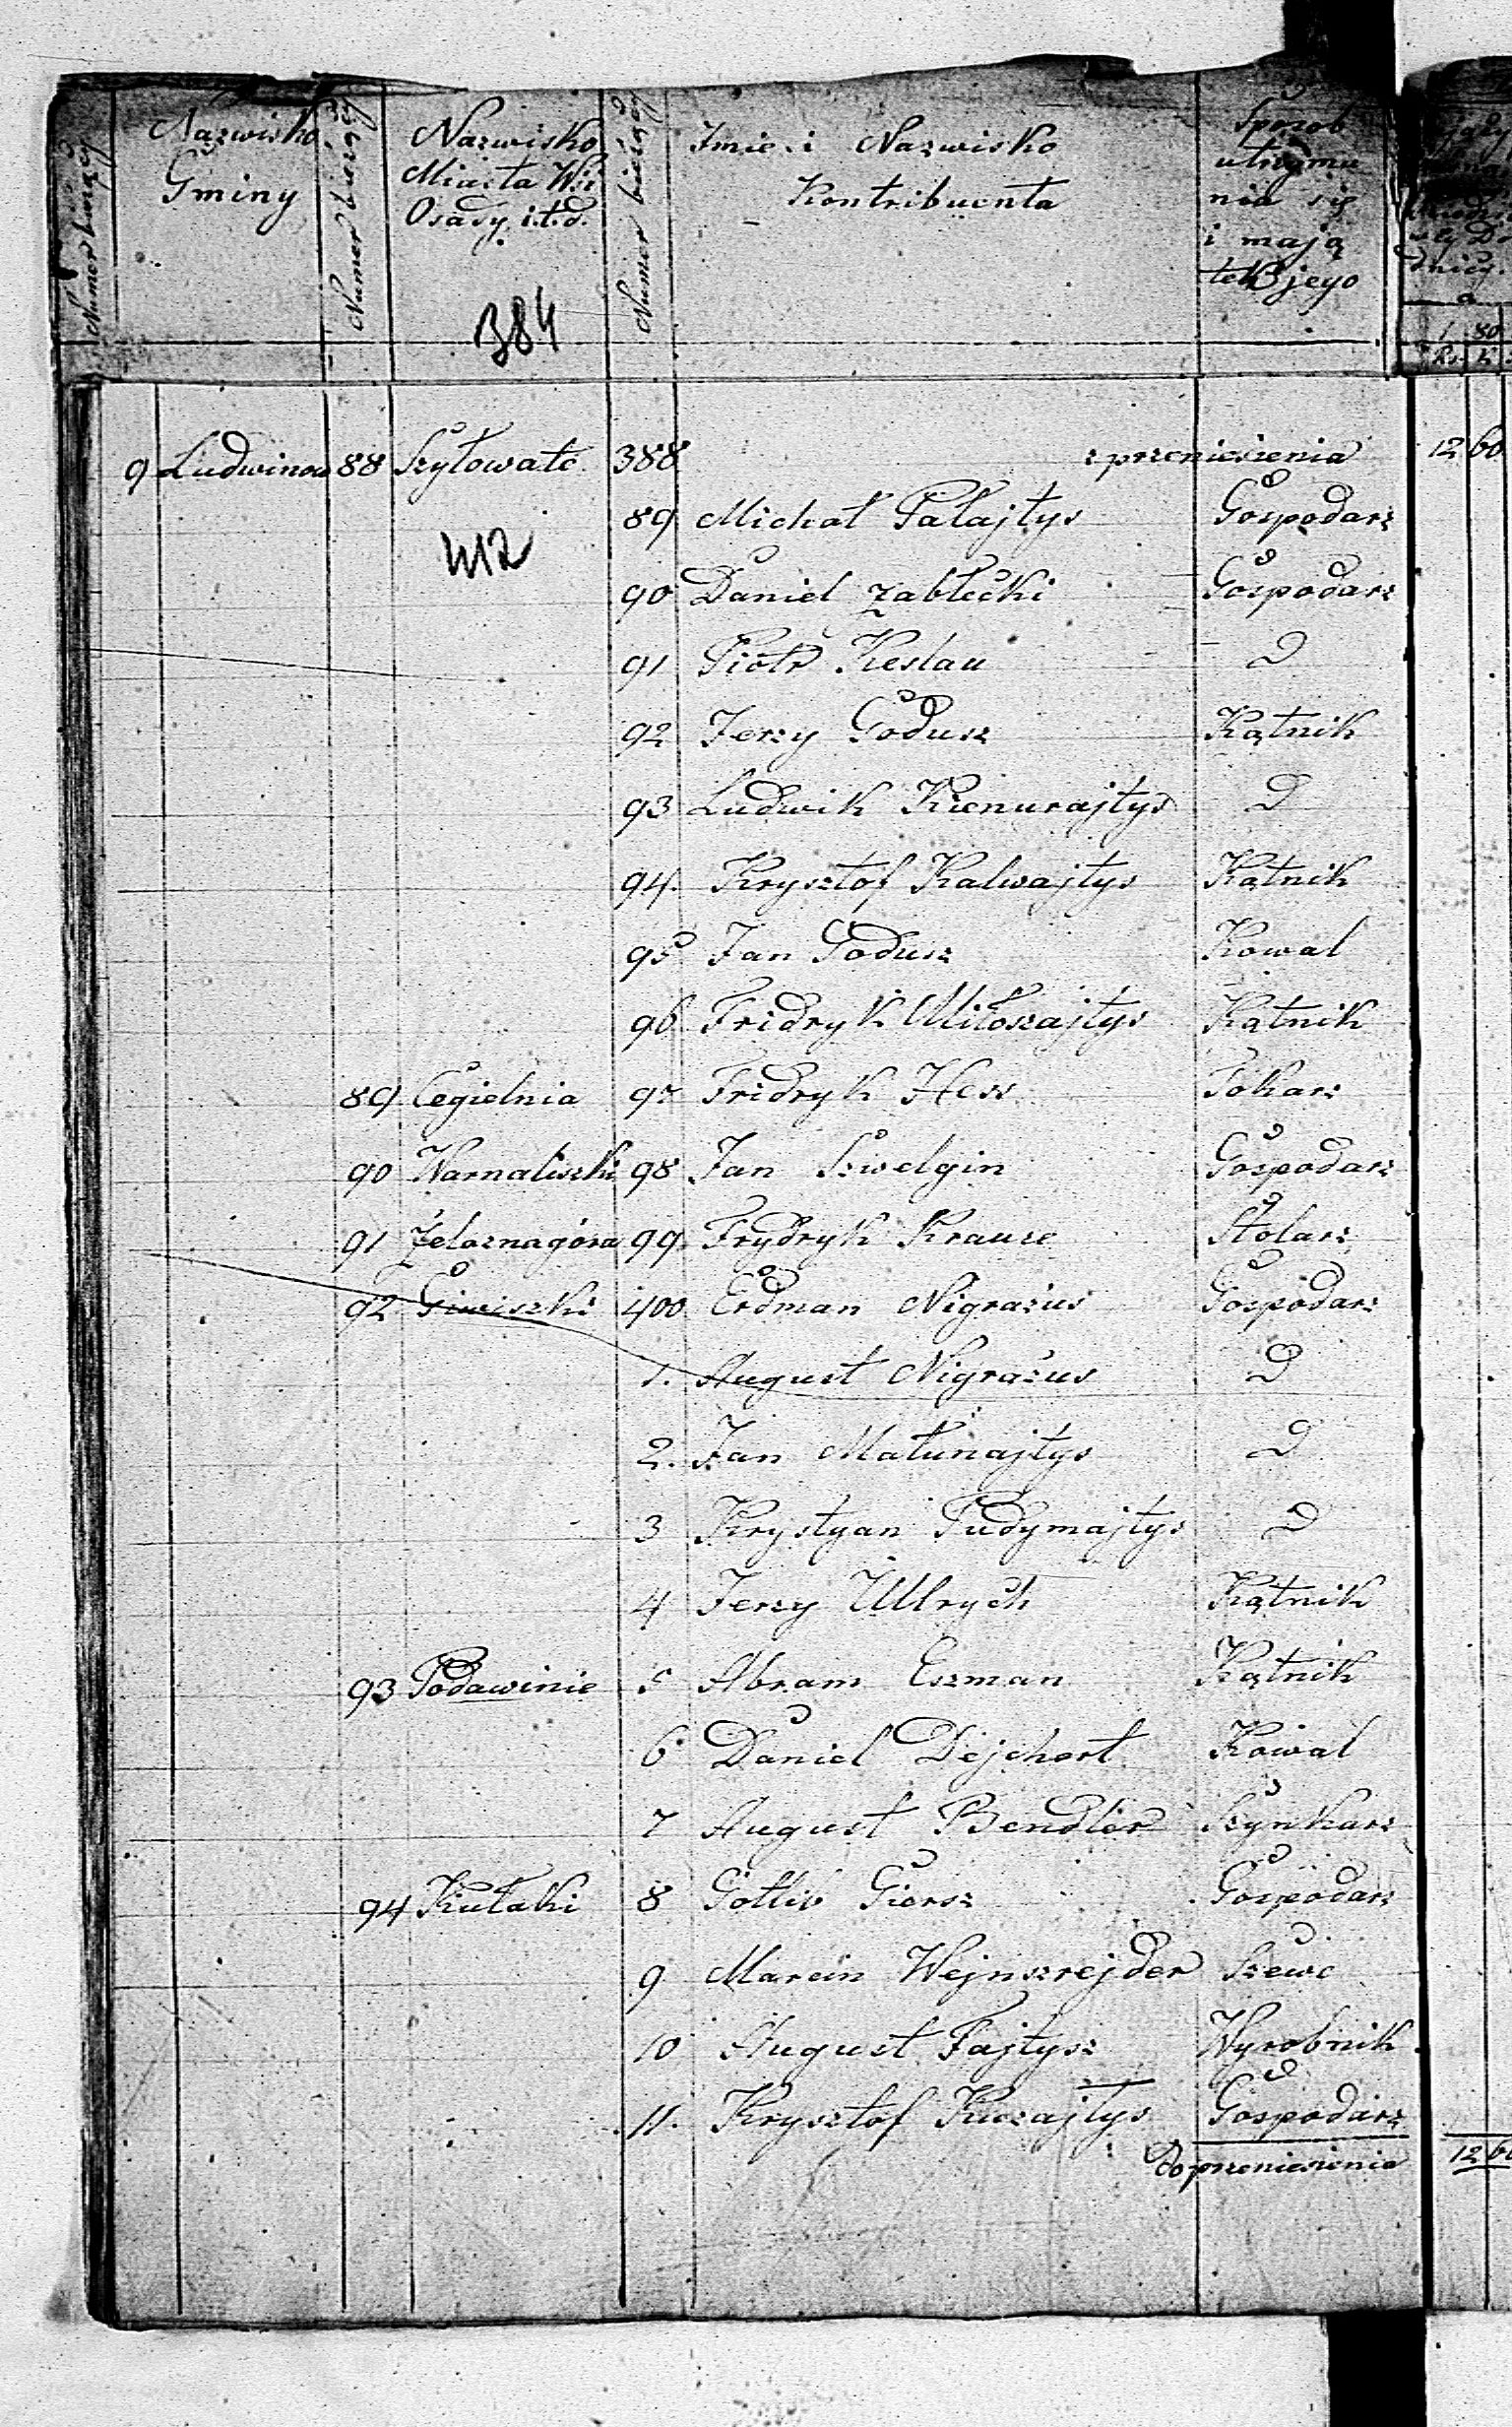 Numer bieżący
Nazwisko Gminy
Numer bieżący
Nazwisko Miasta Wsi Osady i.t.d.
Numer bieżący
Imie i Nazwisko Kontribuenta
Sposob utrzyma nia się i mają tek jego
384
1 80
Rs. k
9 Ludwinow 88 Szyłowate 388 z przeniesienia 12 60
412
89 Michał Pałajtys Gospodarz
90 Daniel Zabłecki Gospodarz
91 Piotr Keslau D
92 Jerzy Godusz Kątnik
93 Ludwik Kienurajtys D
94. Krysztof Kalwajtys Kątnik
95 Jan Godusz Kowal
96 Fridryk Miłoszajtys Kątnik
89 Cegielnia 97 Fridryk Hess Tokarz
90 Warnaliszki 98 Jan Szwelgin Gospodarz
91 Żelaznagóra 99 Frydryk Krauze Stolarz
92 Giwiszki 400 Erdman Nigrażus Gospodarz
1. August Nigrażus D
2. Jan Matunajtys D
3 Krystyan Pudymajtys D
4 Jerzy Ullrych Kątnik
93 Podawinie 5 Abram Eszman Kątnik
6 Daniel Dejchert Kowal
7 August Bendler Szynkarz
94 Kułaki 8 Gotlib Giersz Gospodarz
9 Marcin Wejnszrejder Szewc
10 August Fajtysz Wyrobnik
11. Krysztof Kuszajtys Gospodarz
Do przeniesienia 12 60